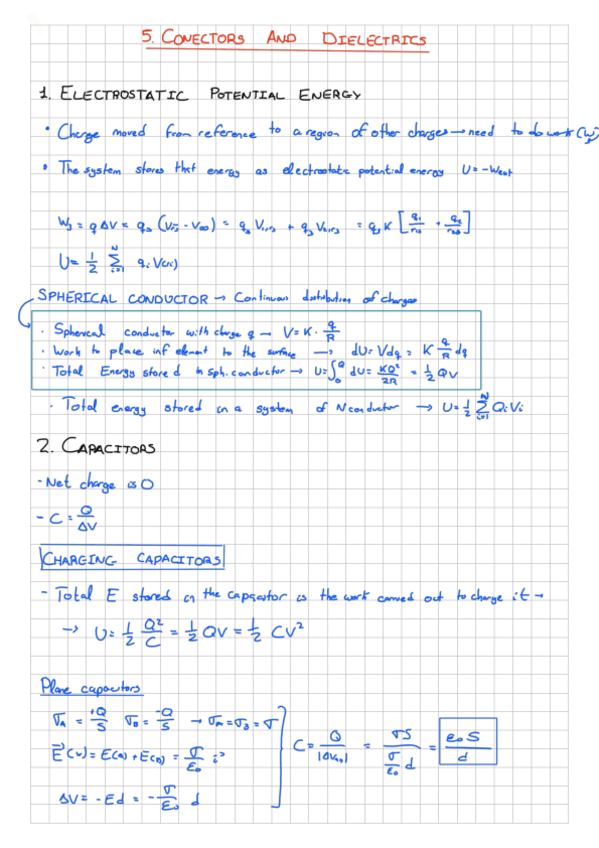 5. CONECTORS AND DIELECTRICS
1. ELECTROSTATIC POTENTIAL ENERGY
• Charge moved from reference to a region of other charges → need to do work (W)
• The system stores that energy as electrostatic potential energy U = -Wext
W₃ = q ΔV = q₃ (Vr₃ - V∞) = q₃ V₁,r₃ + q₃ V₂,r₃ = q₃ K [q₁/r₁₃ + q₂/r₂₃]
U = 1/2 Σ(i=1, N) qᵢ V(rᵢ)
SPHERICAL CONDUCTOR → Continuous distribution of charges
· Spherical conductor with charge q → V = K · q/R
· Work to place inf element to the surface → dU = Vdq = K q/R dq
· Total Energy stored in sph. conductor → U = ∫₀^Q dU = KQ²/2R = 1/2 QV
· Total energy stored in a system of N conductor → U = 1/2 Σ(i=1, N) Qᵢ Vᵢ
2. CAPACITORS
- Net charge is 0
- C = Q/ΔV
CHARGING CAPACITORS
- Total E stored in the capacitor is the work carried out to charge it →
→ U = 1/2 Q²/C = 1/2 QV = 1/2 CV²
Plane capacitors
σA = +Q/S σB = -Q/S → σA = σB = σ
E⃗(r) = E(A) + E(B) = σ/ε₀ i⃗
C = Q/|ΔV| = σS / (σ/ε₀ d) = ε₀ S/d
ΔV = - Ed = - σ/ε₀ d